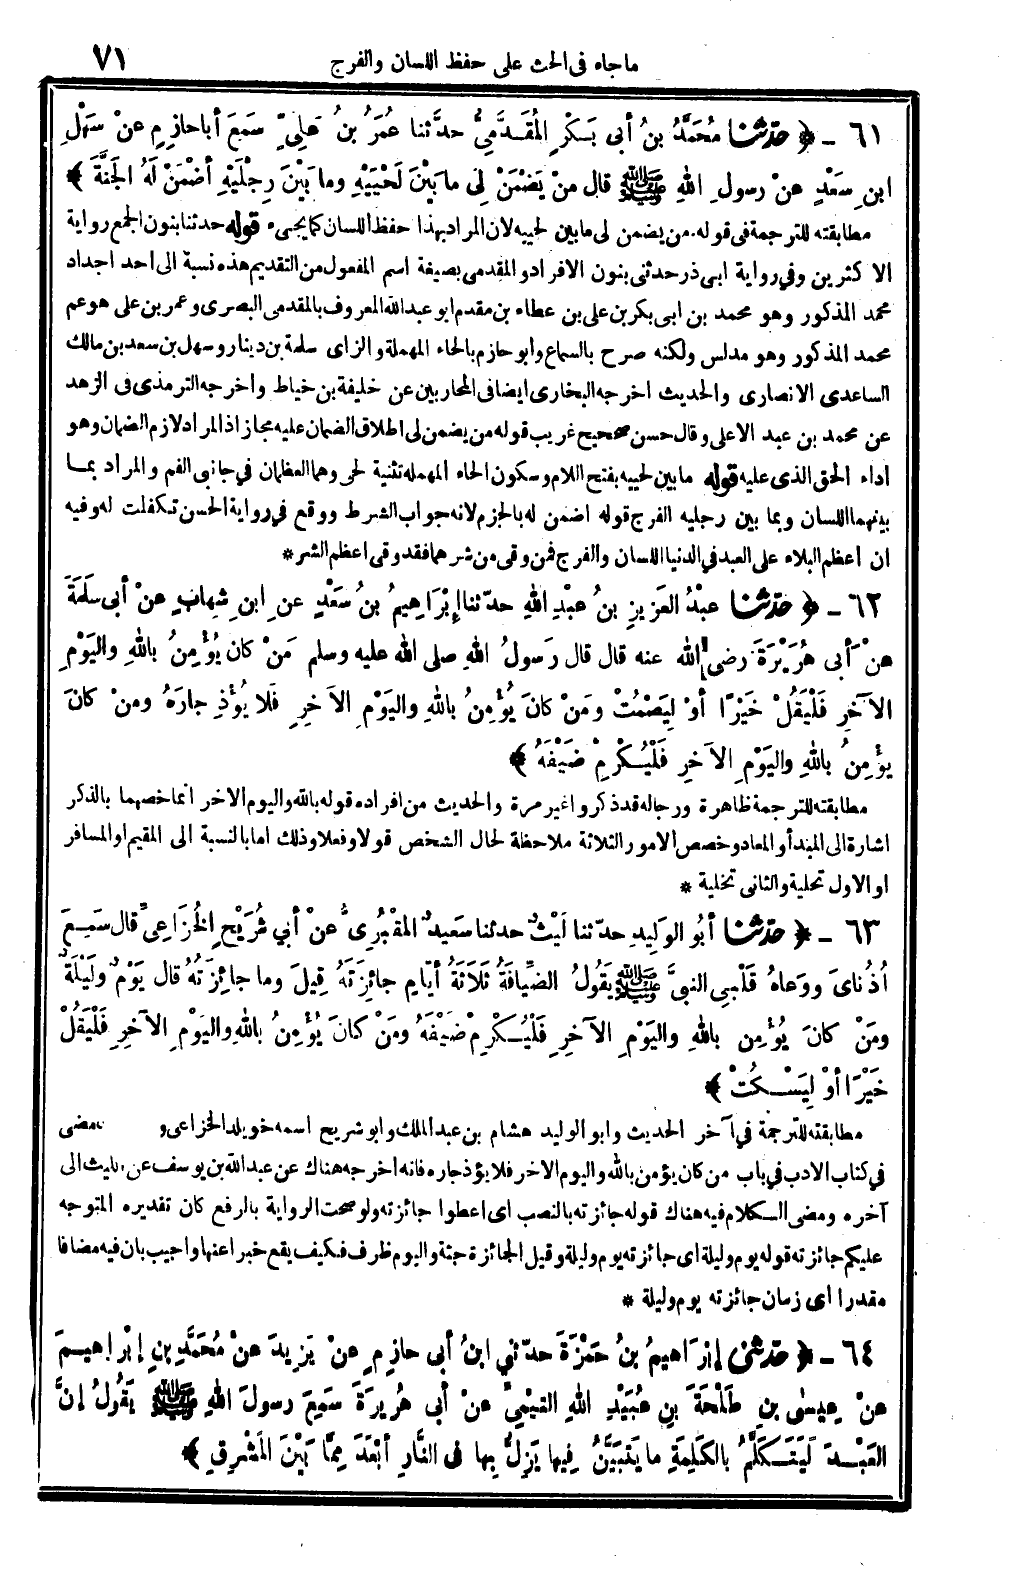 ماجاء فى الحث على حفظ اللسان والفرج ٧١
٦١ - ﴿ حَدّثنا مُحَمَّدُ بنُ أبى بَكْرٍ المُقَدَّمِىُّ حدَّثنا عُمَرُ بنُ عَلِىّ سَمِعَ أباحازِمٍ عنْ سَهْلِ
ابنِ سَعْدٍ عنْ رسولِ اللهِ ﷺ قال منْ يَضْمَنْ لِى مابَيْنَ لَحْيَيْهِ ومابَيْنَ رِجْلَيْهِ أضْمَنْ لَهُ الجَنَّةَ ﴾
مطابقته للترجمة فى قوله من يضمن لى مابين لحييه لان المراد بهذا حفظ اللسان كما يجىء قوله حدثنا بنون الجمع رواية
الاكثرين وفي رواية ابى ذر حدثنى بنون الافراد والمقدمى بصيغة اسم المفعول من التقديم هذه نسبة الى احد اجداد
محمد المذكور وهو محمد بن ابى بكر بن على بن عطاء بن مقدم ابو عبد الله المعروف بالمقدمى البصرى وعمر بن على هو عم
محمد المذكور وهو مدلس ولكنه صرح بالسماع وابو حازم بالحاء المهملة والزاى سلمة بن دينار وسهل بن سعد بن مالك
الساعدى الانصارى والحديث اخرجه البخارى ايضا فى المحاربين عن خليفة بن خياط واخرجه الترمذى فى الزهد
عن محمد بن عبد الاعلى وقال حسن صحيح غريب قوله من يضمن لى اطلاق الضمان عليه مجاز اذ المراد لازم الضمان وهو
اداء الحق الذى عليه قوله مابين لحييه بفتح اللام وسكون الحاء المهملة تثنية لحى وهما العظمان في جانبى الفم والمراد بما
بينهما اللسان وبما بين رجليه الفرج قوله اضمن له بالجزم لانه جواب الشرط ووقع في رواية الحسن تكفلت له وفيه
ان أعظم البلاء على العبد في الدنيا اللسان والفرج فمن وقى من شرهما فقد وقى اعظم الشر *
٦٢ - ﴿ حَدّثنا عبْدُ العَزِيزِ بنُ عبْدِ اللهِ حدّثنا إبْرَاهِيمُ بنُ سَعْدٍ عنِ ابنِ شِهابٍ عنْ أبى سَلَمَةَ
عنْ أبى هُرَيْرَةَ رضى الله عنه قال قال رَسولُ اللهِ صلى الله عليه وسلم مَنْ كان يُؤْمِنُ باللهِ واليَوْمِ
الآخرِ فَلْيَقُلْ خَيْرًا أوْ لِيَصْمُتْ ومَنْ كانَ يُؤْمِنُ باللهِ واليَوْمِ الآخِرِ فَلا يُؤْذِ جارَهُ ومنْ كانَ
يؤْمِنُ باللهِ واليَوْمِ الآخرِ فَلْيُكْرِمْ ضَيْفَهُ ﴾
مطابقته للترجمة ظاهرة ورجاله قد ذكروا غير مرة والحديث من افراده قوله بالله واليوم الاخر انما خصهما بالذكر
اشارة الى المبدأ والمعاد وخصص الامور الثلاثة ملاحظة لحال الشخص قولا وفعلا وذلك اما بالنسبة الى المقيم او المسافر
او الاول تحلية والثانى تخلية *
٦٣ - ﴿ حَدّثنا أبُو الوَلِيدِ حدّثنا لَيْثٌ حدثنا سَعِيدٌ المَقْبُرِىُّ عنْ أبي شُرَيْحٍ الخُزَاعِىِّ قال سَمِعَ
أُذُناىَ ووَعاهُ قَلْبِى النبىَّ ﷺ يَقُولُ الضِّيافَةُ ثَلَاثَةُ أيَّامٍ جائِزَتَهُ قِيلَ وما جائِزَتُهُ قال يَوْمٌ ولَيْلَةٌ
ومَنْ كانَ يُؤْمِن باللهِ واليَوْمِ الآخرِ فَلْيُكْرِمْ ضَيْفَهُ ومَنْ كانَ يُؤْمِنُ باللهِ واليَوْمِ الآخِرِ فَلْيَقُلْ
خَيْرًا أوْ لِيَسْكُتْ ﴾
مطابقته للترجمة في آخر الحديث وابو الوليد هشام بن عبد الملك وابو شريح اسمه خويلد الخزاعى و مضى
في كتاب الادب في باب من كان يؤمن بالله واليوم الاخر فلا يؤذ جاره فانه اخرجه هناك عن عبد الله بن يوسف عن الليث الى
آخره ومضى الكلام فيه هناك قوله جائزته بالنصب اى اعطوا جائزته ولو صحت الرواية بالرفع كان تقديره المتوجه
عليكم جائزته قوله يوم وليلة اى جائزته يوم وليلة وقيل الجائزة جثة واليوم ظرف فكيف يقع خبرا عنها واجيب بان فيه مضافا
مقدرا اى زمان جائزته يوم وليلة *
٦٤ - ﴿ حَدّثنى إبْرَاهِيمُ بنُ حَمْزَةَ حدّثني ابنُ أبى حازِمٍ عنْ يَزِيدَ عنْ مُحَمَّدِ بنِ إبْراهِيمَ
عنْ عِيسَى بنِ طَلْحَةَ بنِ عُبَيْدِ اللهِ التيْمِيِّ عنْ أبى هُرِيرَةَ سَمِعَ رسولَ اللهِ ﷺ يَقُولُ إنَّ
العَبْدَ لَيَتَكَلَّمُ بالكَلِمَةِ ما يَتَبَيَّنُ فِيها يَزِلُّ بِها فى النَّارِ أبْعَدَ مِمَّا بَيْنَ المَشْرِقِ ﴾